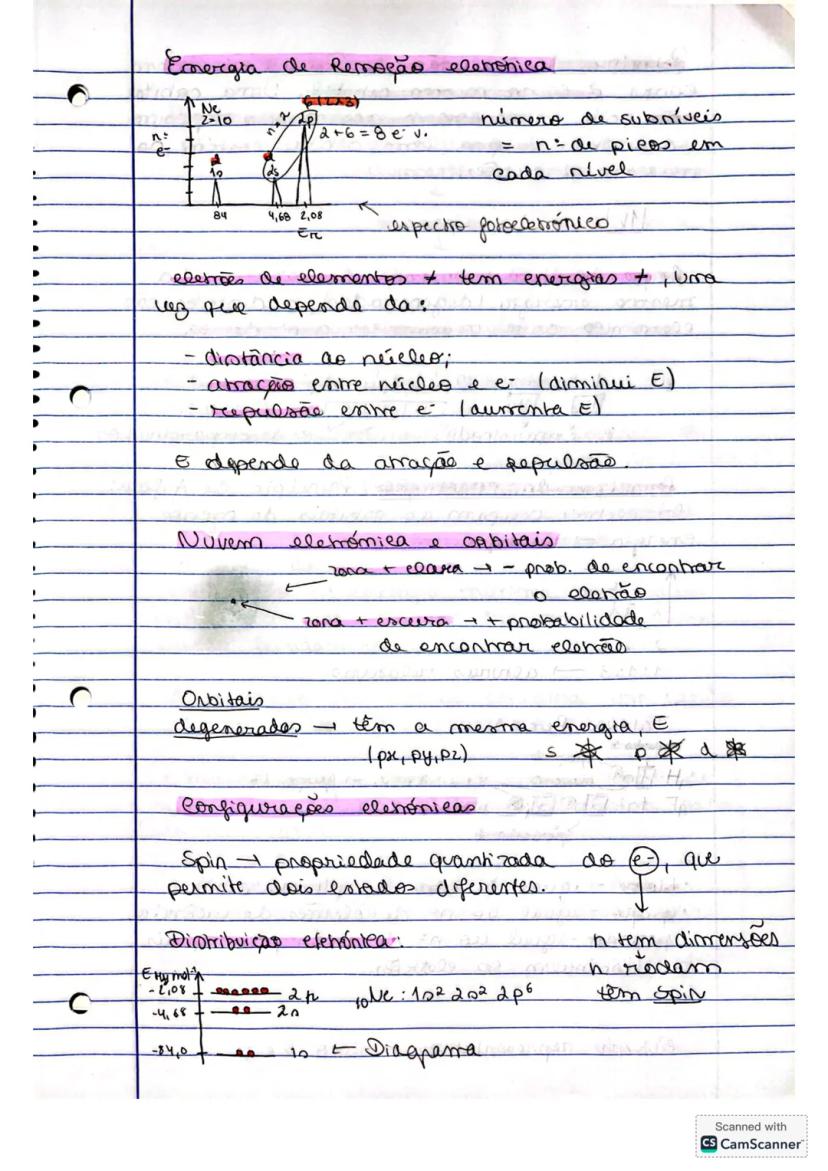 Energia de Remoção eletrónica
Ne
Z=10
n=
e-
1s
n=2
2s
2p
2+6 = 8 e- v.
84
4,68
2,08
ER
número de subníveis
= nº de picos em
cada nível
espectro fotoeletrónico
eletrões de elementos ≠ tem energias ≠, uma
vez que depende da:
- distância ao núcleo;
- atração entre núcleo e e- (diminui E)
- repulsão entre e- (aumenta E)
E depende da atração e repulsão.
Nuvem eletrónica e orbitais
zona + clara → - prob. de encontrar
o eletrão
zona + escura → + probabilidade
de encontrar eletrão
Orbitais
degenerados → têm a mesma energia, E
(px, py, pz)
s p d
Configurações eletrónicas
Spin → propriedade quantizada do e-, que
permite dois estados diferentes.
Distribuição eletrónica:
n tem dimensões
n rodam
têm spin
E MJ mol-1
-2,08 2p
-4,68 2s
-84,0 1s ← Diagrama
10Ne : 1s2 2s2 2p6
Scanned with
CS CamScanner